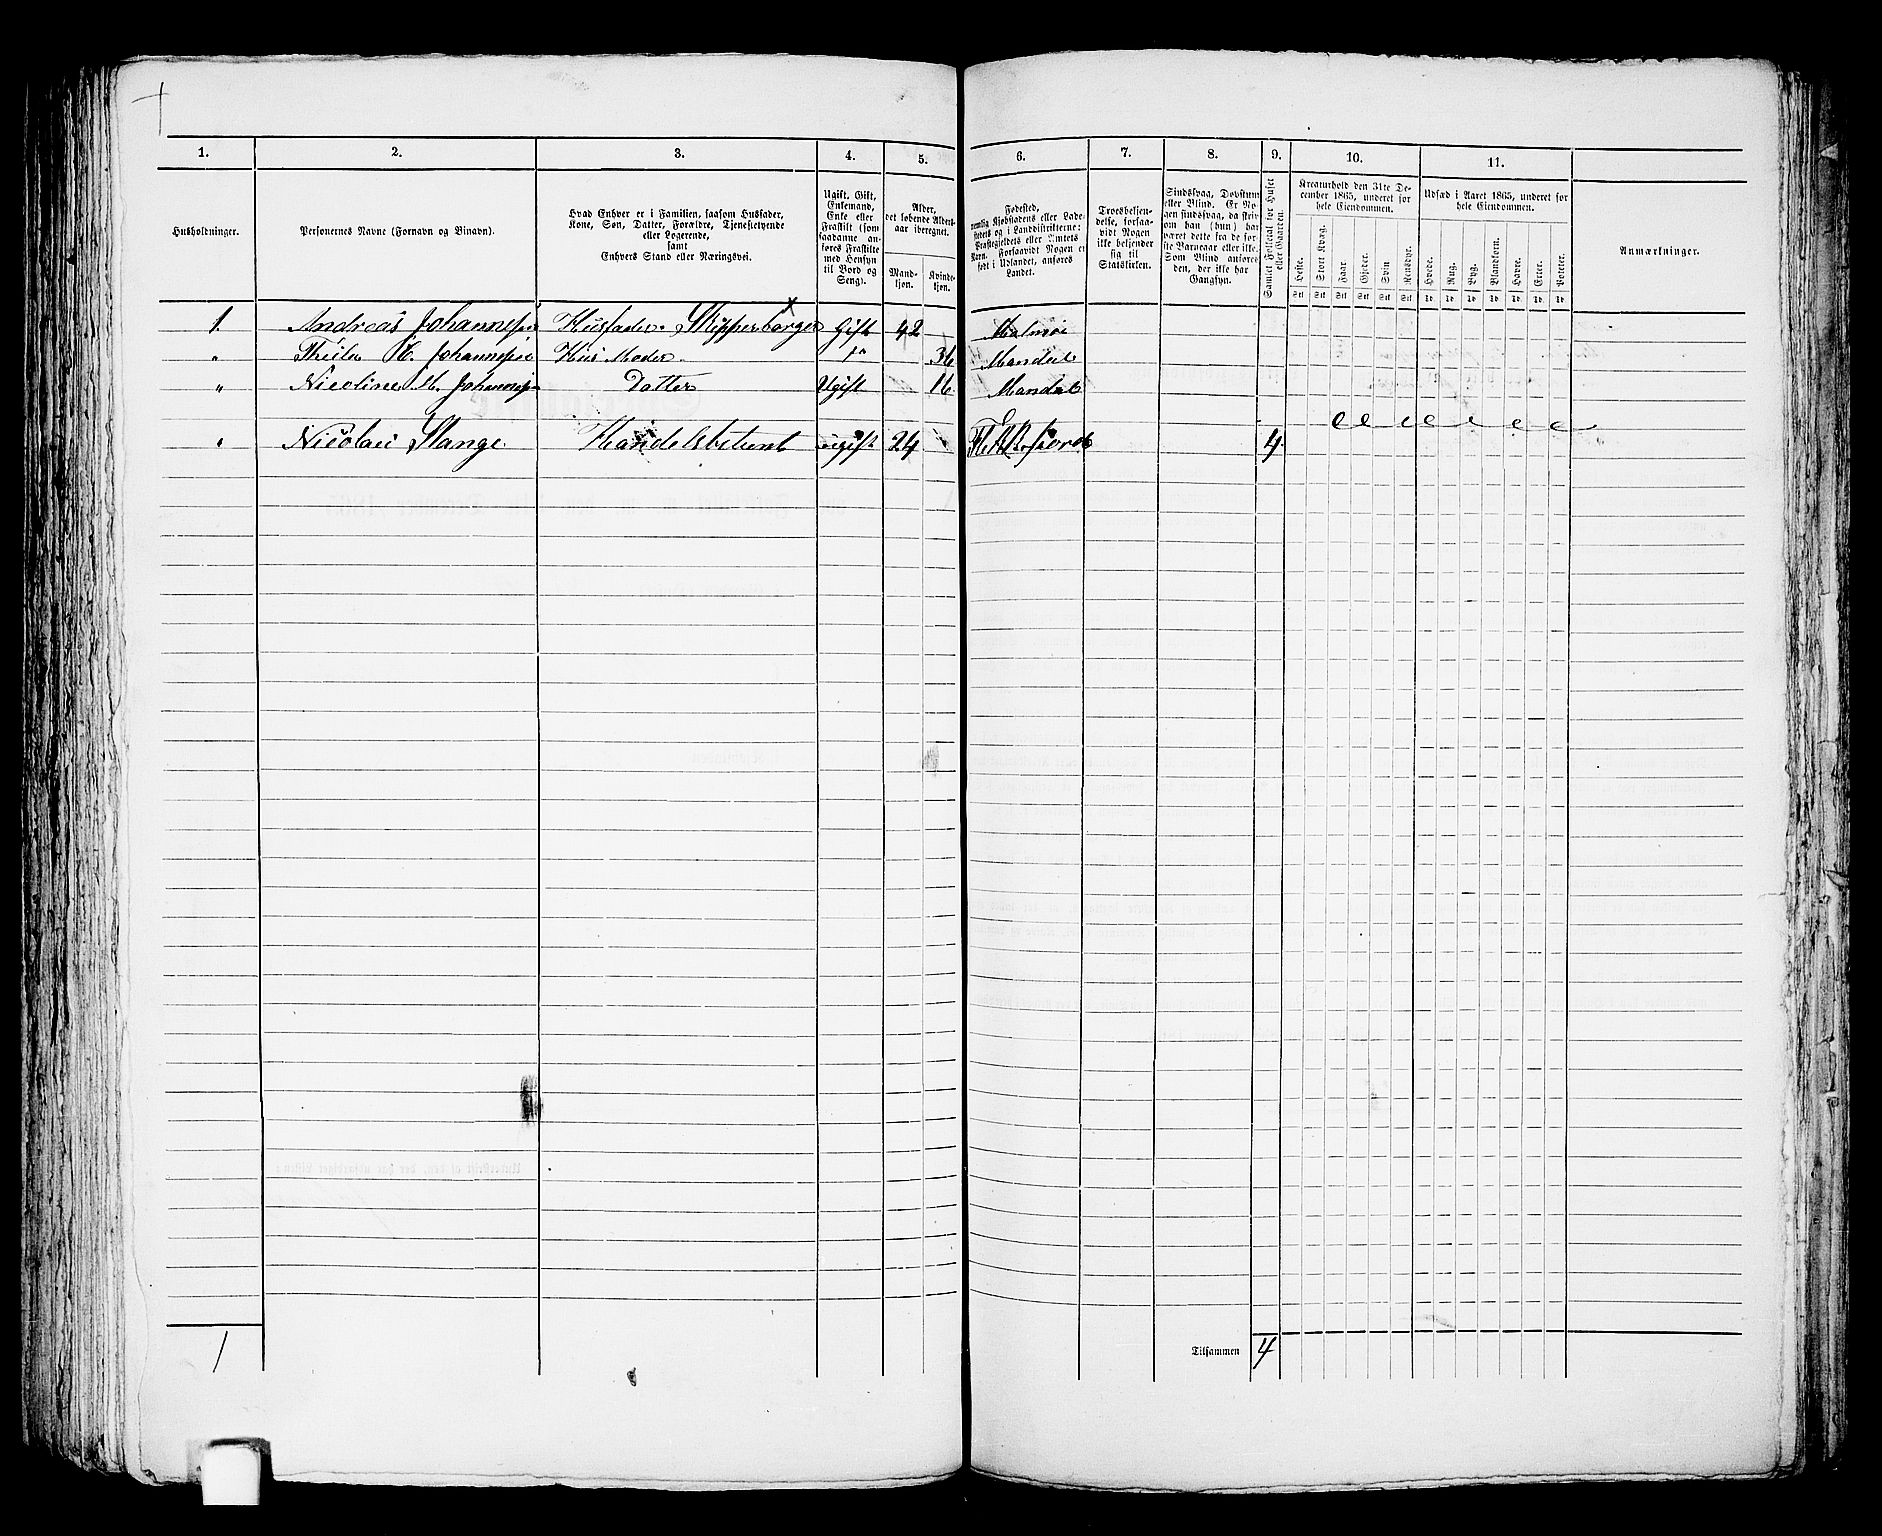 1. 2. 3. 4. 5. 6. 7. 8. 9. 10. 11.
Husholdninger.
Personernes Navne (Fornavn og Binavn).
Hvad Enhver er i Familien, saasom Husfader,
Kone, Søn, Datter, Forældre, Tjenestetyende
eller Logerende,
samt
Enhvers Stand eller Næringsvei.
Ugift, Gift,
Enkemand,
Enke eller
Fraskilt (som
saadanne an-
føres Fraskilte
med Hensyn
til Bord og
Seng).
Alder,
det løbende Alders-
aar iberegnet.
Mand-
kjøn.
Kvinde-
kjøn.
Fødested,
nemlig Kjøbstadens eller Lade-
stedets og i Landdistrikterne:
Præstegjeldets eller Amtets
Navn. Forsaavidt Nogen er
født i Udlandet, anføres
Landet.
Troesbekjen-
delse, forsaa-
vidt Nogen
ikke bekjender
sig til
Statskirken.
Sindssvag, Døvstum
eller Blind. Er No-
gen sindssvag, da skriv
om han (hun) har
været dette fra de før-
ste Barneaar eller ikke.
Som Blind anføres
den, der ikke har
Gangsyn.
Samlet Folketal for Huset
eller Gaarden.
Kreaturhold den 31te De-
cember 1865, underet for
hele Eiendommen.
Heste. Stort Kvæg. Faar. Gjeder. Svin Rensdyr.
Stk Stk Stk Stk Stk Stk
Udsæd i Aaret 1865, underet for
hele Eiendommen.
Hvede. Rug. Byg. Blandkorn. Havre. Erter. Poteter.
Td. Td. Td. Td. Td. Td. Td.
Anmærkninger.
1. Andreas Johannesen Husfader Skipperborger Gift 42 Malmø
" Johannesen Hus Moder 36 Mandal
" Nicoline M. Johannesen Datter Ugift 16 Mandal
" Nicolai Stange Handelsbetient ugift 24 Flekkefiord 4
1 Tilsammen 4